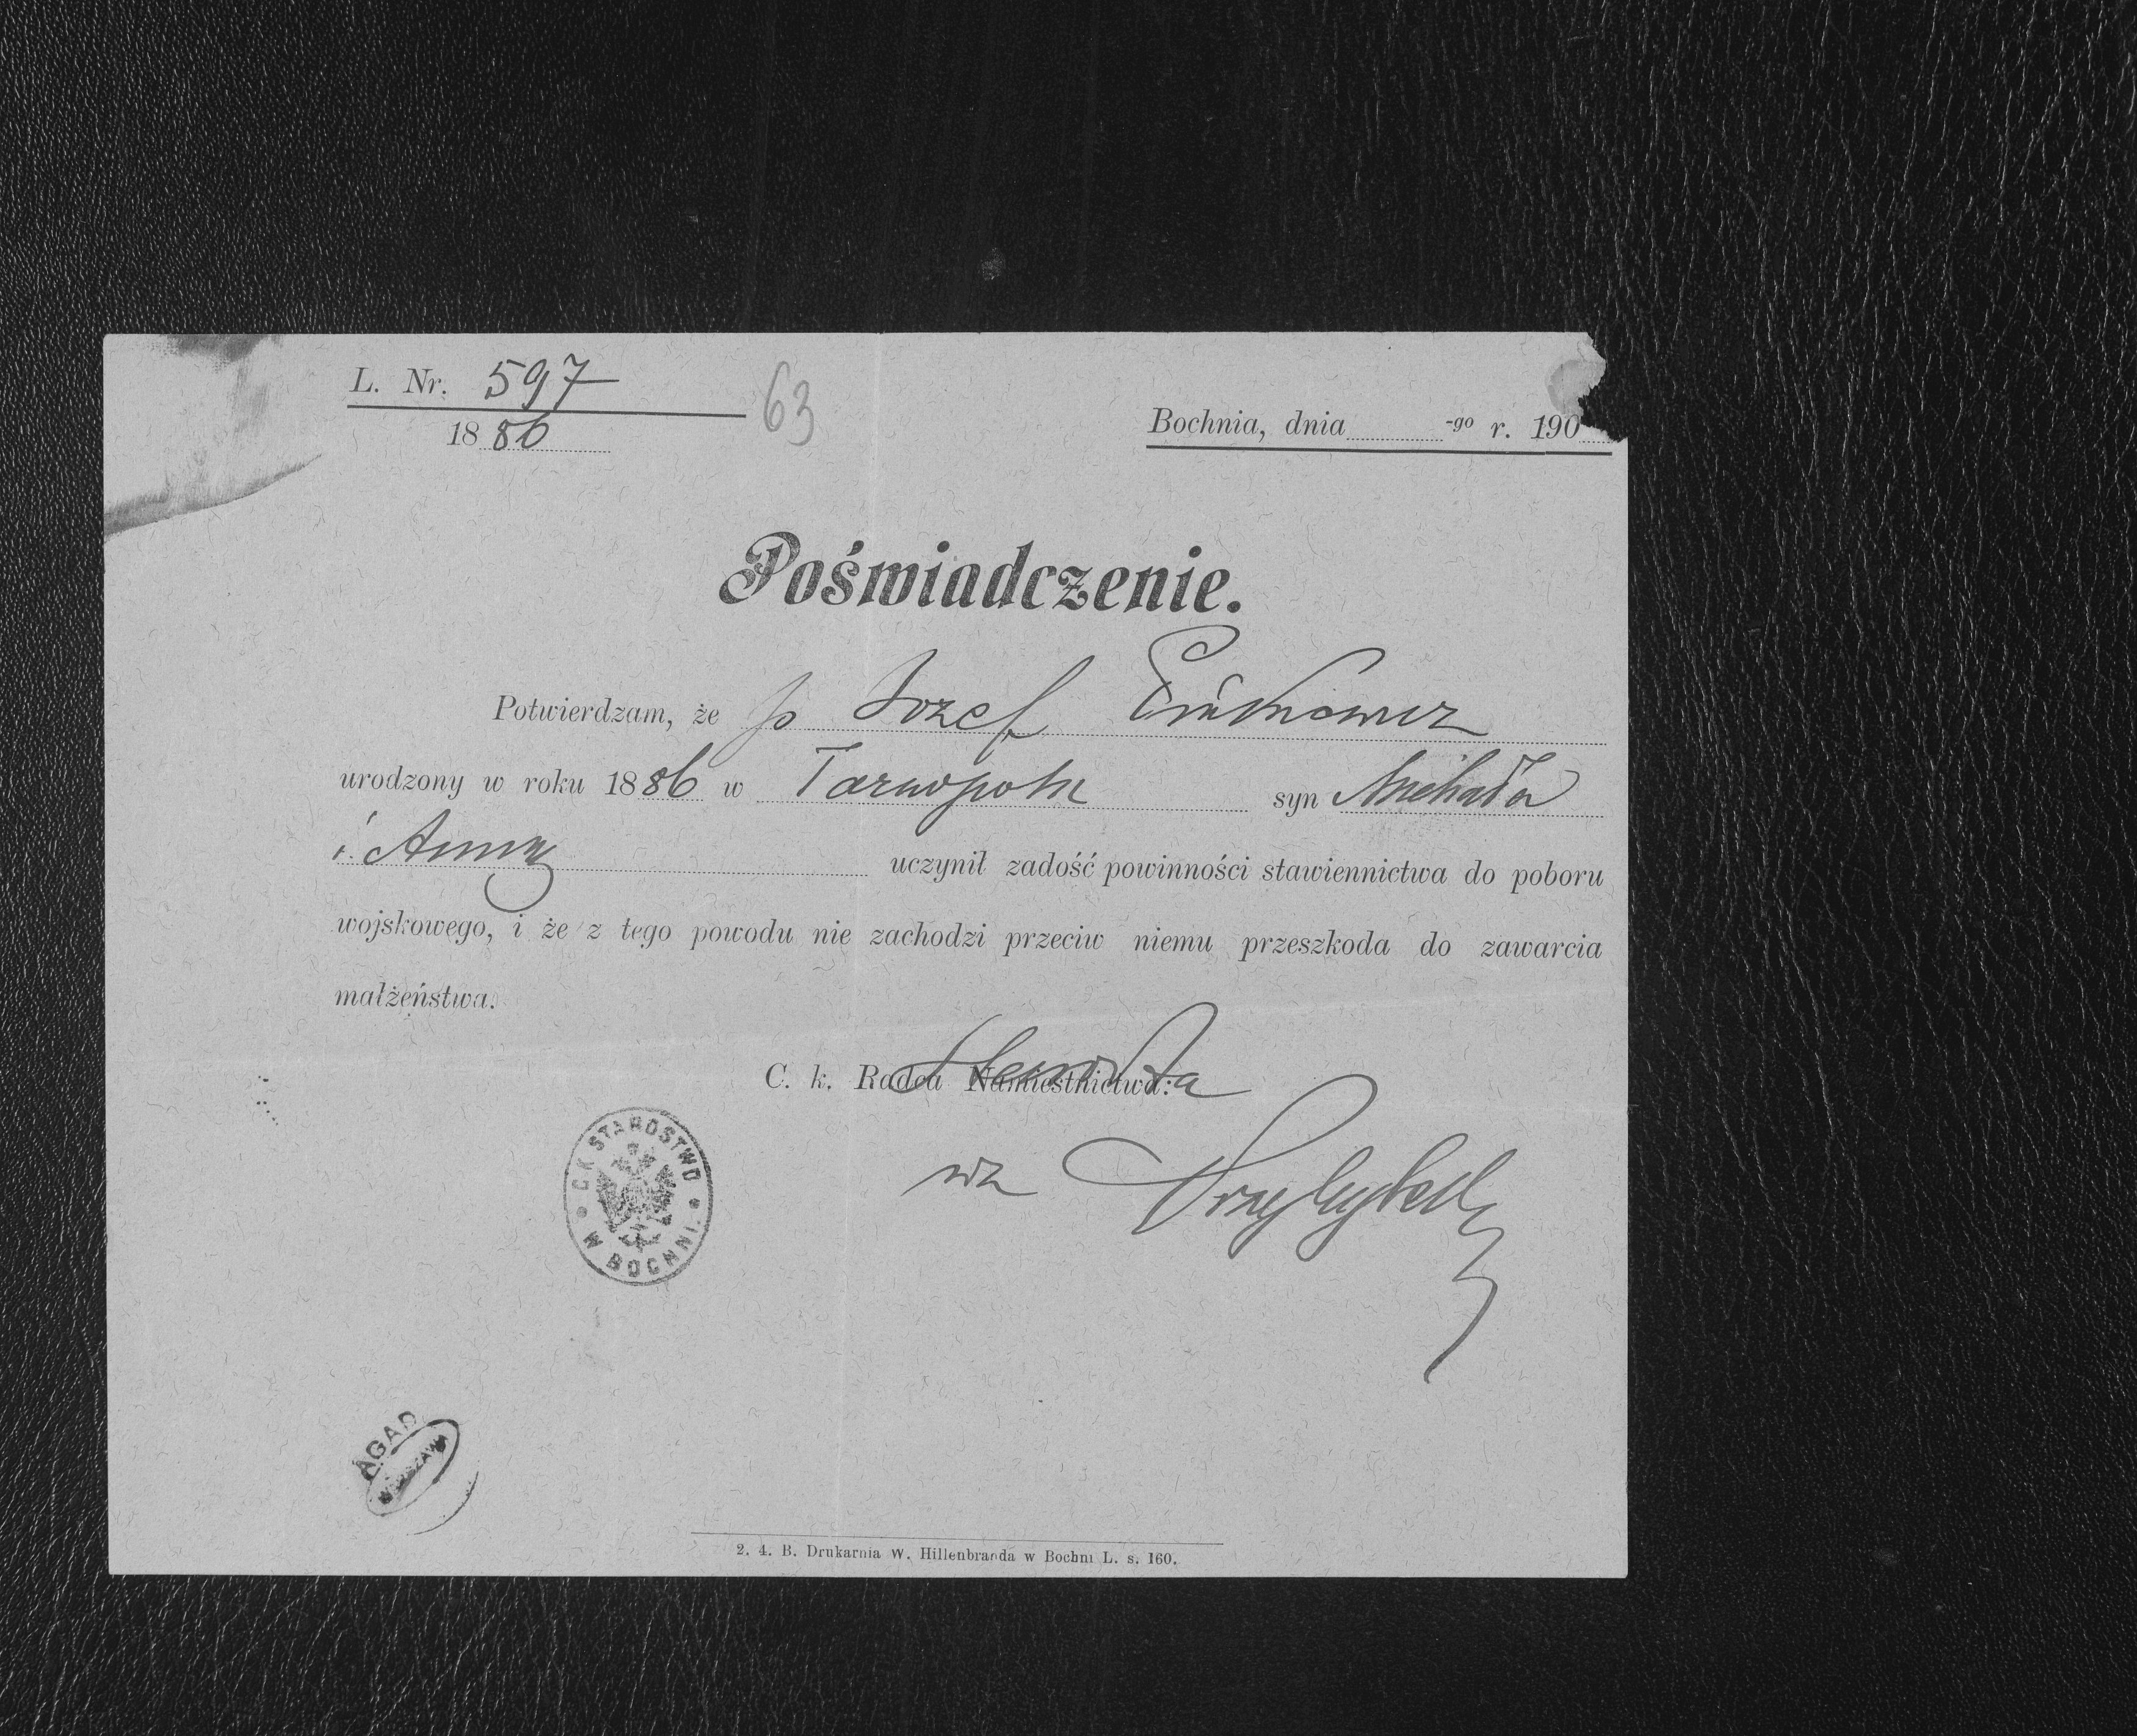 L. Nr. 597
1886
63
Bochnia, dnia -go r. 190
Poświadczenie.
Potwierdzam, że p Józef
urodzony w roku 1886 w Tarnopolu syn Michała
i Anny uczynił zadość powinności stawiennictwa do poboru
wojskowego, i że z tego powodu nie zachodzi przeciw niemu przeszkoda do zawarcia
małżeństwa.
C. k. Radca Namiestnictwa:
Starosta
wz
C.K STAROSTWO W BOCHNI.
AGAD
WARSZAWA
2. 4. B. Drukarnia W. Hillenbranda w Bochni L. s. 160.